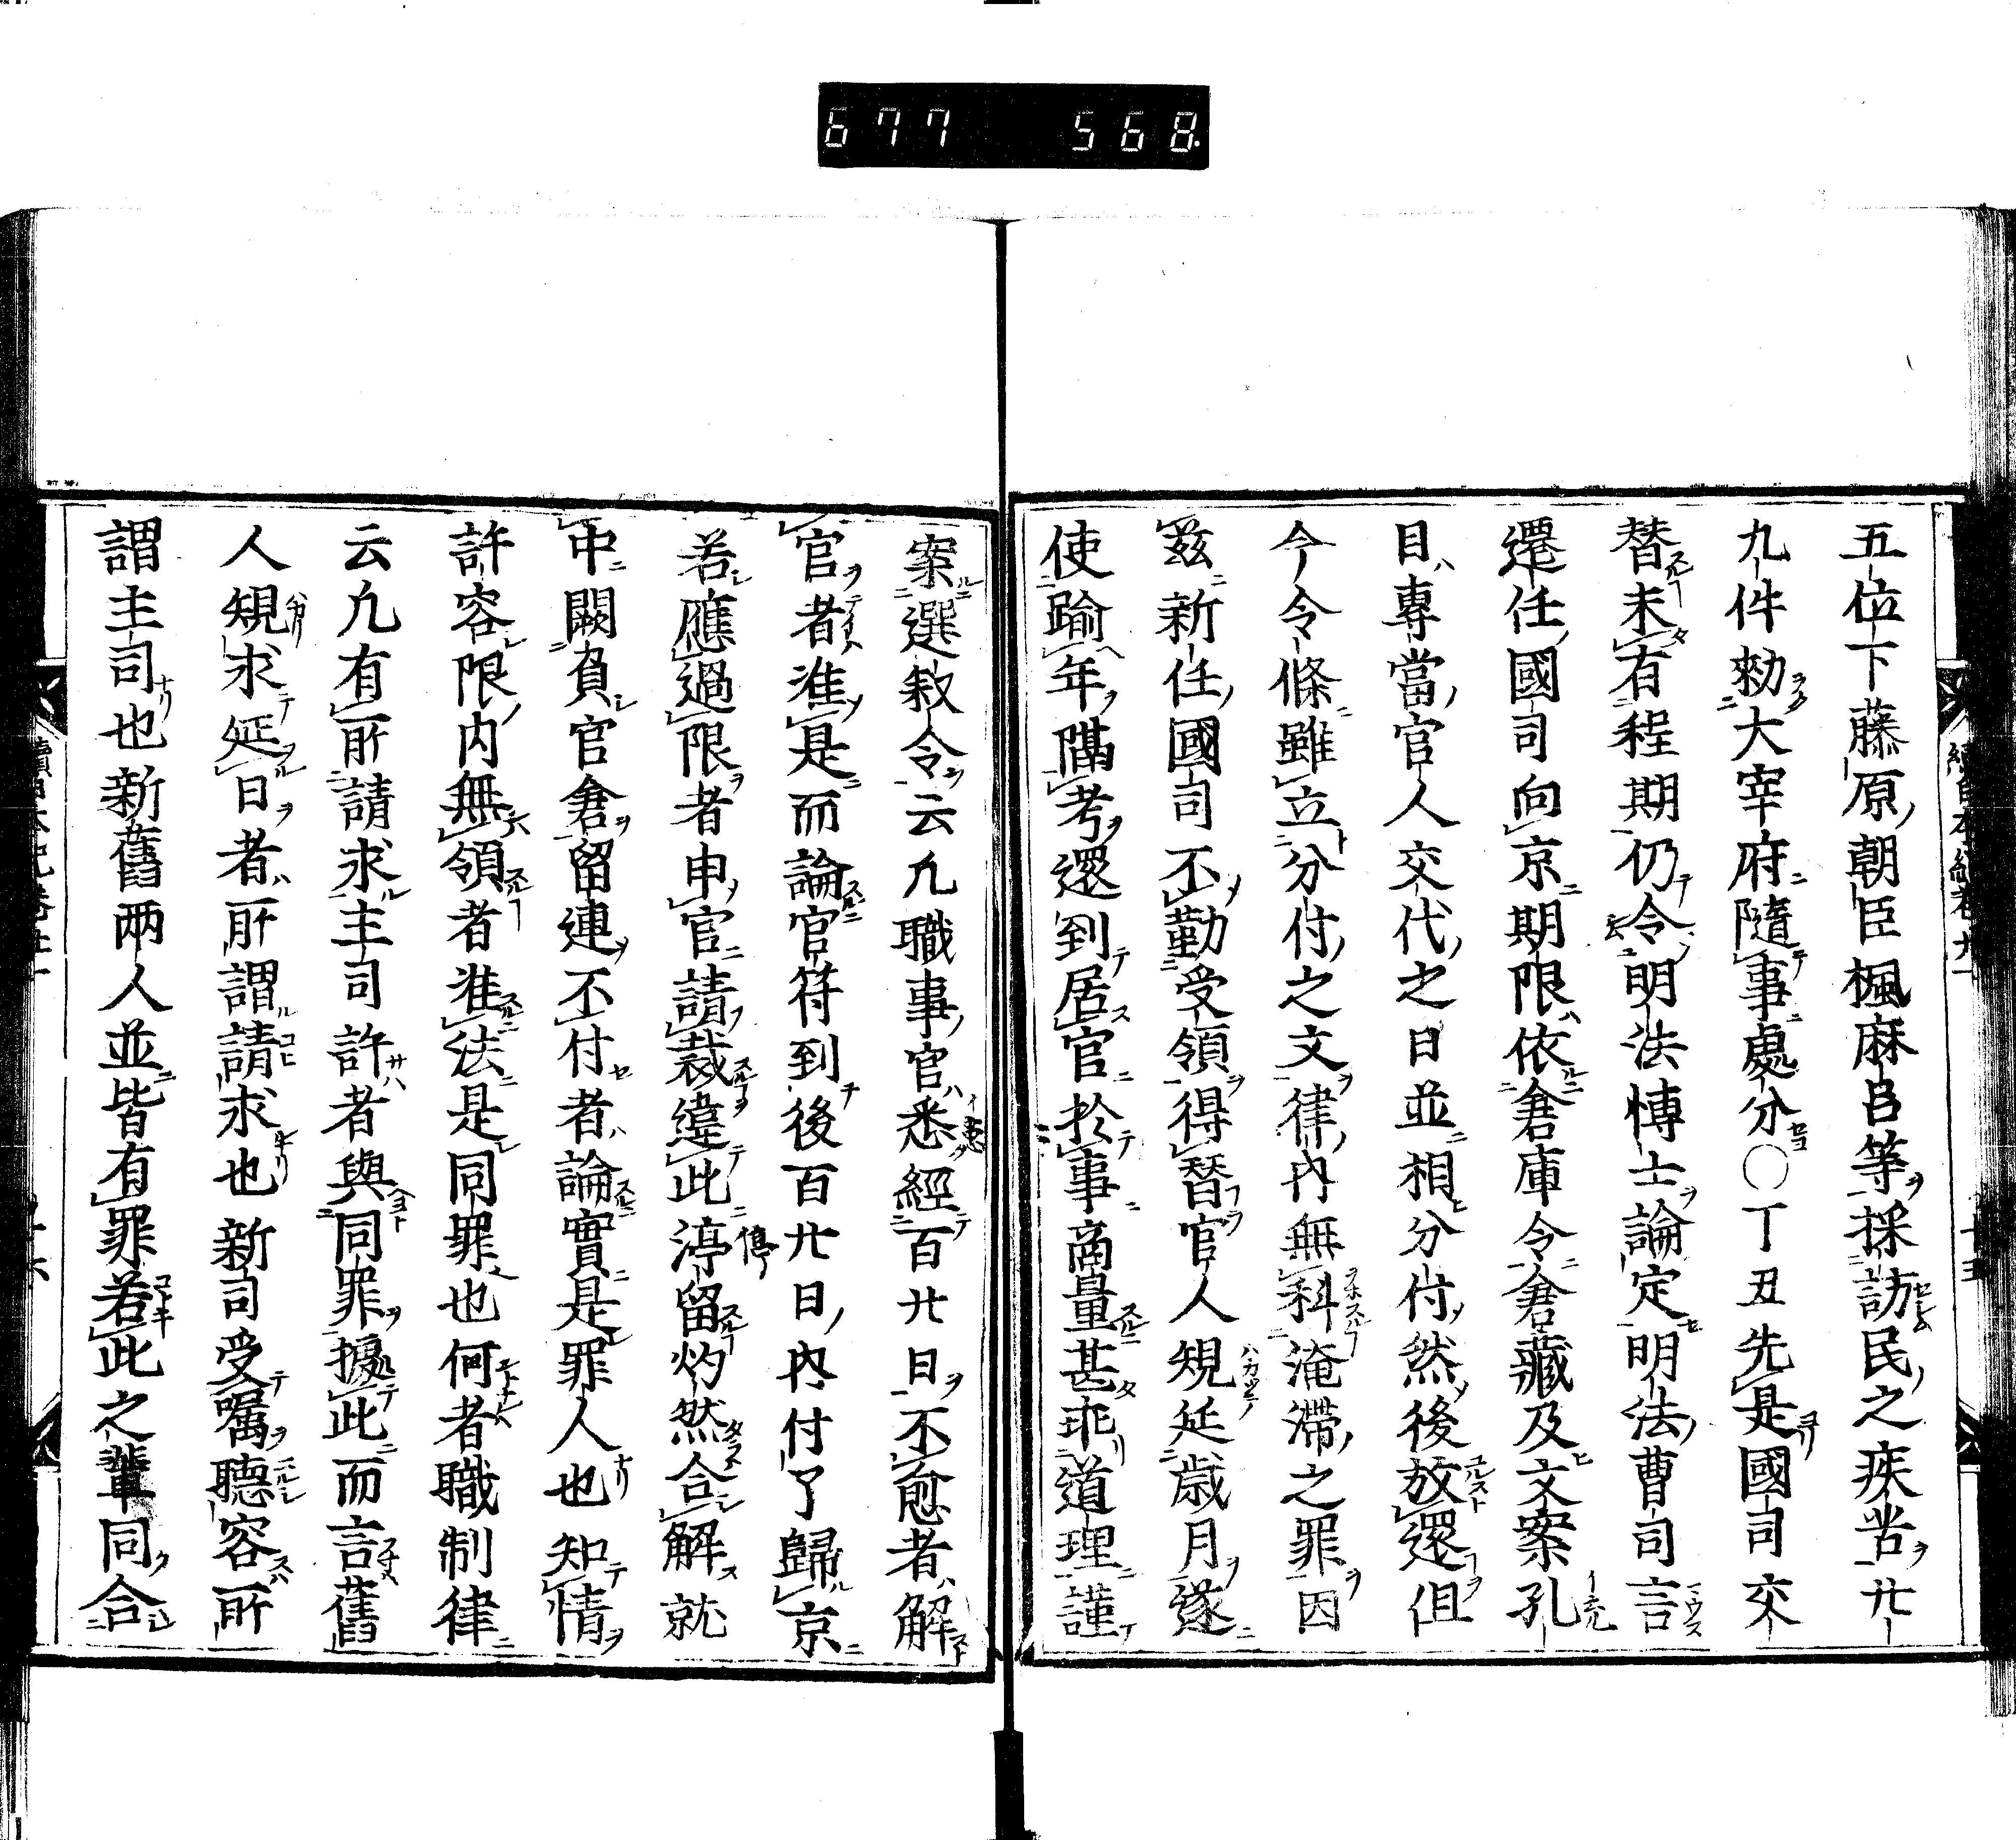 677 568
五位下藤原朝臣楓麻呂等採訪民之疾苦廿
九件勑大宰府隨事處分〇丁丑先是國司交
替未有程期仍令明法博士論定明法曹司言
遷任國司向京期限依倉庫令倉藏及文案孔
目專當官人交代之日並相分付然後放還但
今令條雖立分付之文律內無科淹滯之罪因
茲新任國司不勤受領得替官人規延歳月遂
使踰年隔考還到居官於事商量甚乖道理謹
案選敘令云凢職事官悉經百廿日不愈者解
官者准是而論官符到後百廿日內付了歸京
若應過限者申官請裁違此渟留灼然合解就
中闕負官倉留連不付者論實是罪人也知情
許容限內無領者准法是同罪也何者職制律
云凢有所請求主司許者與同罪據此而言舊
人規求延日者所謂請求也新司受嘱聴容所
謂主司也新舊兩人並皆有罪若此之輩同合